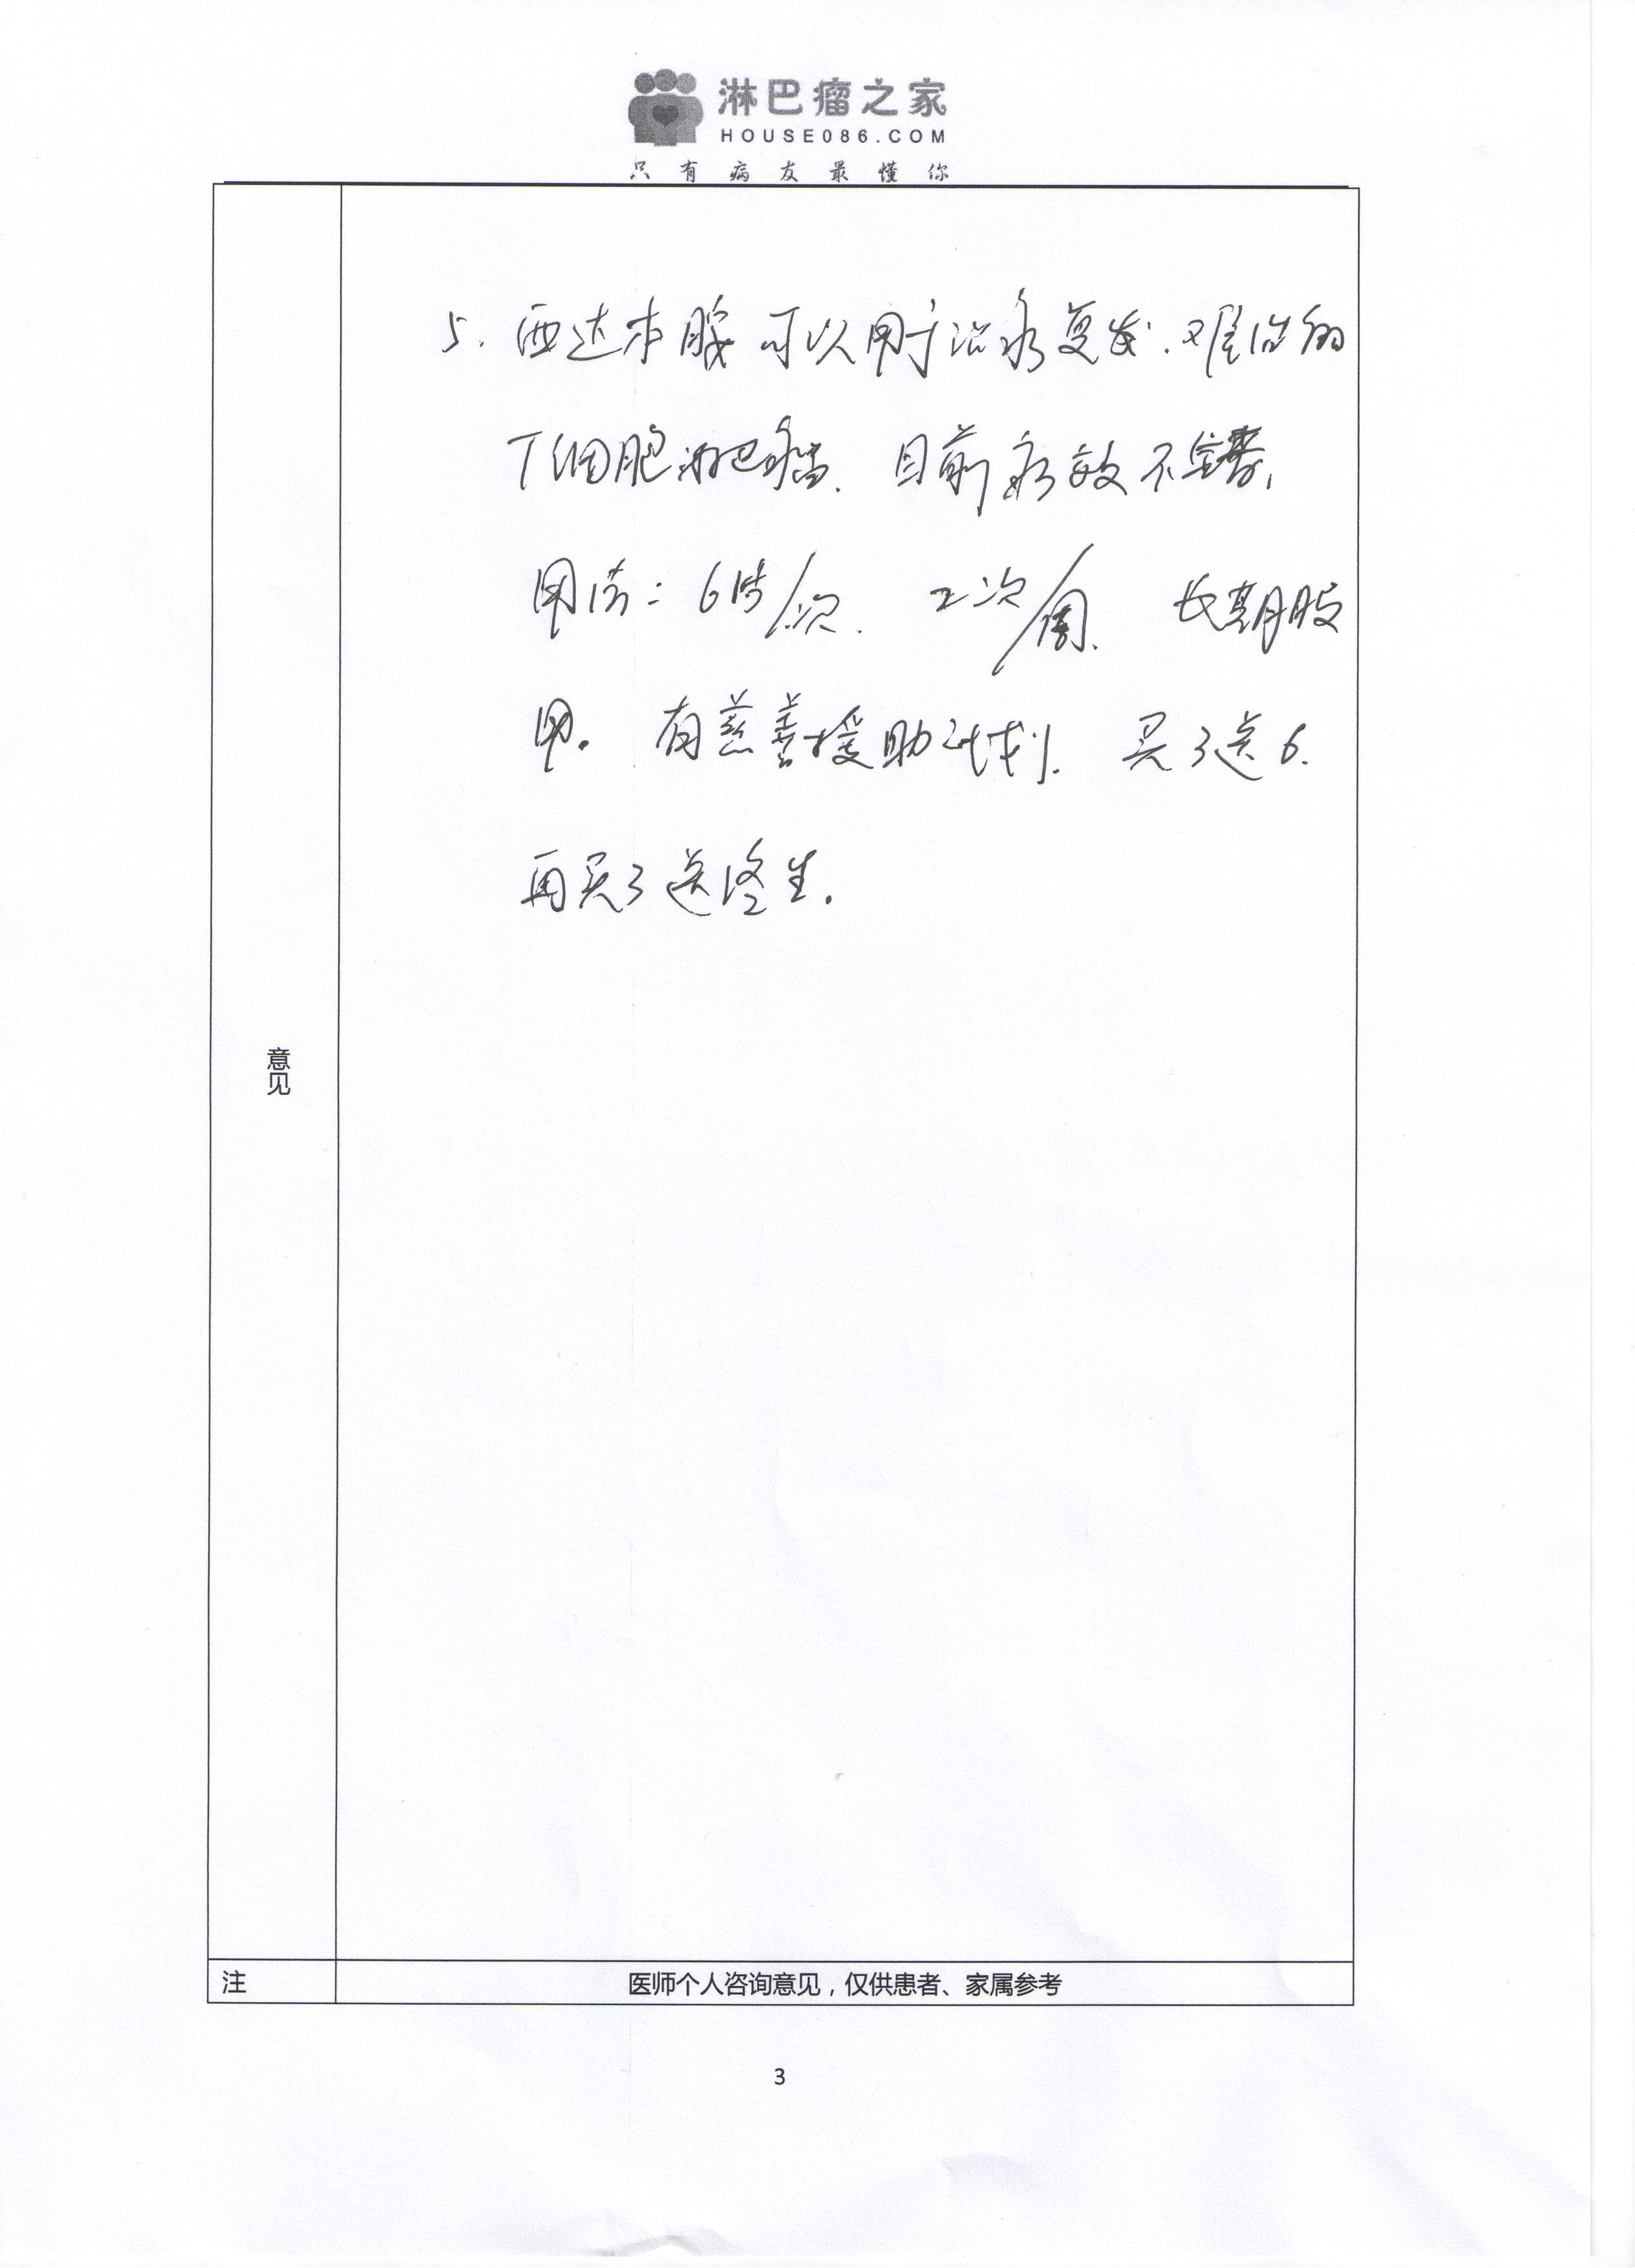 淋巴瘤之家
HOUSE086.COM
只有病友最懂你
5. 西达本胺可以用于治疗复发、难治的
T细胞淋巴瘤. 目前疗效不
用法: 6片/次. 2次/周. 长期服
用. 有慈善援助计划. 买3送6.
再买3送终生.
意见
注
医师个人咨询意见，仅供患者、家属参考
3